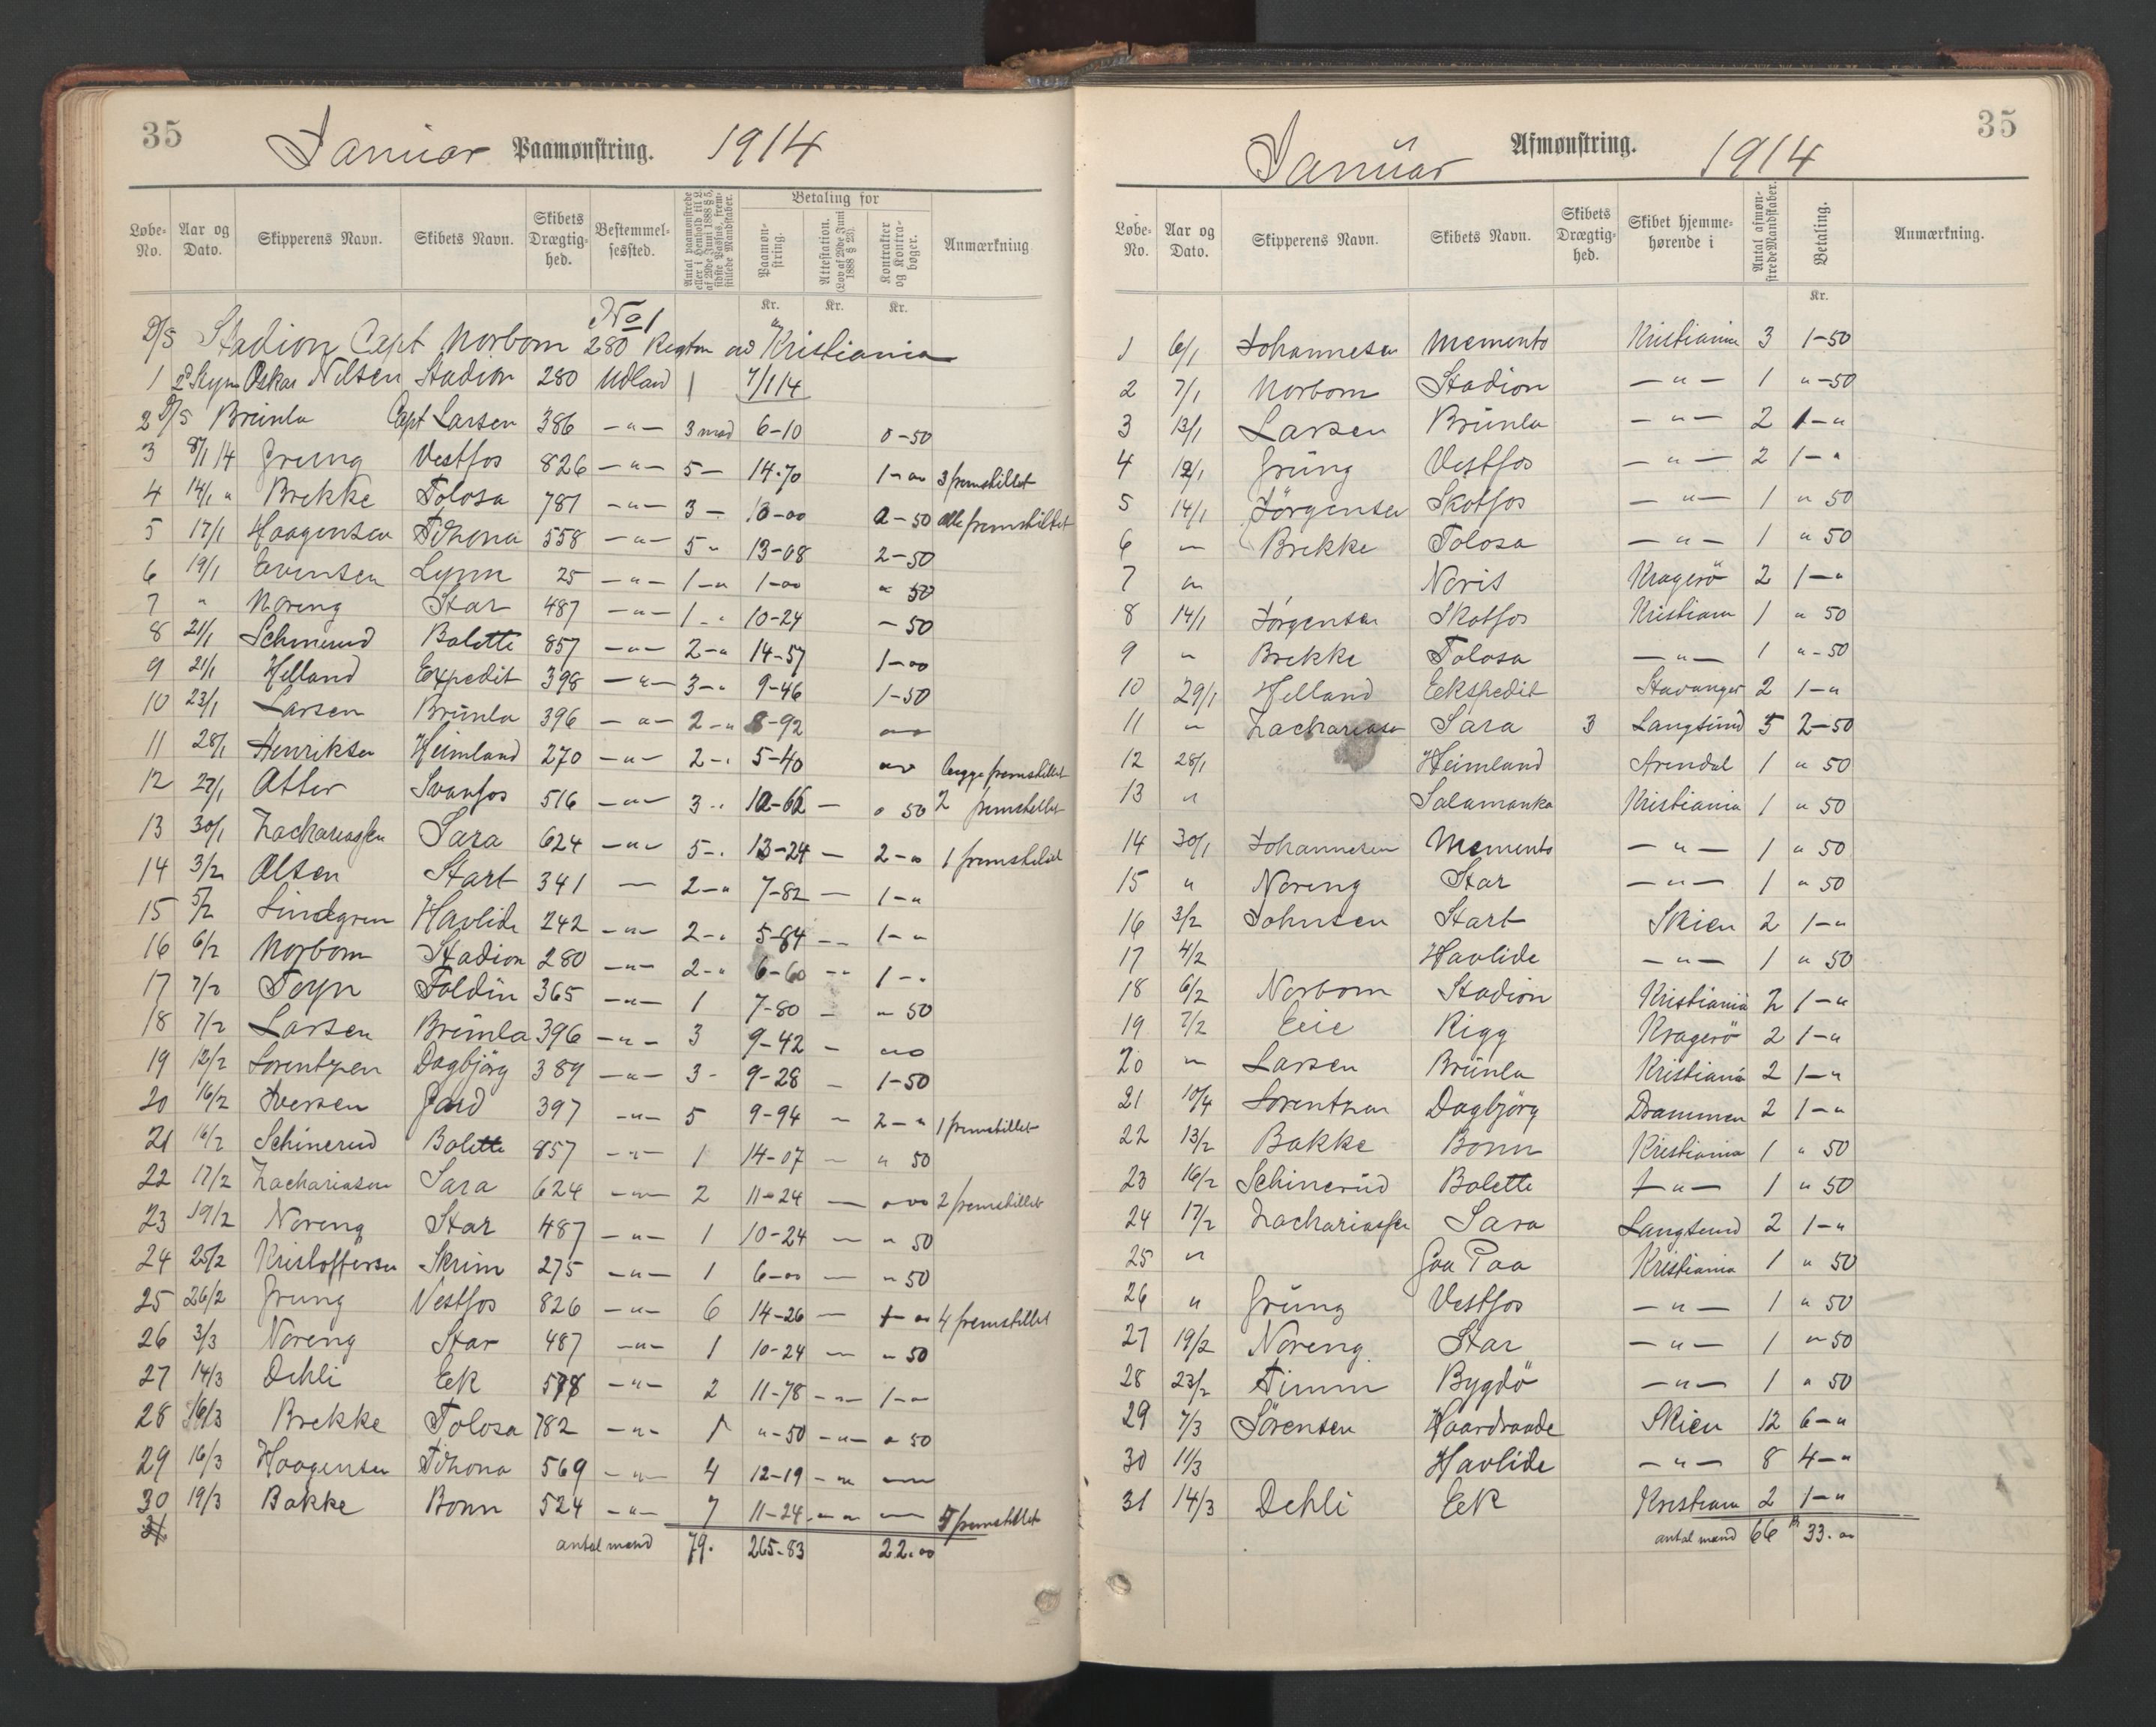 35
Januar Paamønstring. 1914
Løbe-No. Aar og Dato. Skipperens Navn. Skibets Navn. Skibets Drægtig-hed. Bestemmel-sessted. Antal paamønstrede eller i Henhold til L. af 29de Juni 1888 § 5, sidste Passus, frem-stillede Mandskaber. Betaling for Paamøn-string. Attestation. (Lov af 29de Juni 1888 § 23). Kontrakter og Kontra-bøger. Anmærkning
Kr. Kr. Kr.
No 1
D/S Stadion Capt Norbom 280 Regton av Kristiania
1 Oskar Nilsen Stadion 280 Udland 1 7/1 14
2 D/S Brünla Capt Larsen 386 -"- 3 mad 6-10 0-50
3 8/1 14 Grung Vestfos 826 -"- 5 - 14.70 1-00 3 fremstillet
4 14/1 " Brekke Tolosa 781 -"- 3 - 10-00 0-50 alle fremstillet
5 17/1 Haagensen Fdhona 558 -"- 5 " 13-08 2-50
6 19/1 Evensen Lynn 25 -"- 1-" 1-00 " 50
7 " Noreng Star 487 -"- 1 - " 10-24 - 50
8 21/1 Schinerud Bolette 857 -"- 2-" 14-57 1-00
9 21/1 Helland Expedit 398 -"- 3-" 9-46 1-50
10 23/1 Larsen Brünla 396 -"- 2-" 8-92
11 28/1 Henriksen Heimland 270 -"- 2-" 5-40 begge fremstillet
12 27/1 Atter Svanfos 516 -"- 3 " - 0 50 2 fremstillet
13 30/1 Zachariassen Sara 624 -"- 5-" 13-24 - 2-00 1 fremstillet
14 3/2 Olsen Start 341 - 2-" 7-82 - 1-"
15 5/2 Lindgren Havlide 242 -"- 2-" 5-84 -- 1-"
16 6/2 Norbom Stadion 280 -"- 2-" 6-60 -- 1-"
17 7/2 Foyn Foldin 365 -"- 1 7-80 - " 50
18 7/2 Larsen Brünla 396 -"- 3 9-42 -
19 12/2 Lorentzen Dagbjörg 389 -"- 3 - 9-28 - 1-50
20 16/2 Iversen Gard 397 -"- 5 9-94 - 2-" 1 fremstillet
21 16/2 Schinerud Bolette 857 -"- 1 14-07 - " 50
22 17/2 Zachariasen Sara 624 -"- 2 11-24 - 2 fremstillet
23 19/2 Noreng Star 487 -"- 1 10-24 - " 50
24 25/2 Kristoffersen Skrim 275 -"- 1 6-00 - " 50
25 26/2 Grung Vestfos 826 -"- 6 14-26 - 4 fremstillet
26 3/3 Noreng Star 487 -"- 1 10-24 - " 50
27 14/3 Dehli Eek 578 -"- 2 11-78 -"- 1-"
28 16/3 Brekke Tolosa 782 -"- 1 "-50 -"- " 50
29 16/3 Haagensen Fdhona 569 -"- 4 12-19 -"- -
30 19/3 Bakke Bonn 524 -"- 7 11-24 -"- - 5 fremstillet
31
antal mand 79. 265-83 22.00
35
Januar Afmønstring. 1914
Løbe-No. Aar og Dato. Skipperens Navn. Skibets Navn. Skibets Drægtig-hed. Skibet hjemme-hørende i Antal afmøn-strede Mandskaber. Betaling. Anmærkning.
Kr.
1 6/1 Johannesen Memento Kristiania 3 1-50
2 7/1 Norbom Stadion -"- 1 "-50
3 13/1 Larsen Brünla -"- 2 1-"
4 12/1 Grüng Vestfos -"- 2 1-"
5 14/1 Jörgensen Skotfos -"- 1 " 50
6 " Brekke Tolosa -"- 1 " 50
7 " Noris Kragerö 2 1-"
8 14/1 Jörgensen Skotfos Kristiania 1 " 50
9 " Brekke Tolosa -"- 1 "-50
10 29/1 Helland Eekspedit Stavanger 2 1-"
11 " Zachariasen Sara 3 Langsund 5 2-50
12 28/1 Heimland Arendal 1 " 50
13 " Salamanka Kristiania 1 " 50
14 30/1 Johannesen Memento -"- 1 " 50
15 " Noreng Star -"- 1 " 50
16 3/2 Johnsen Start Skien 2 1-"
17 4/2 Havlide -"- 1 " 50
18 6/2 Norbom Stadion Kristiania 2 1-"
19 7/2 Eeie Rigg Kragerö 2 1-"
20 " Larsen Brünla Kristiania 2 1-"
21 10/4 Lorentzen Dagbjörg Drammen 2 1-"
22 13/2 Bakke Bonn Kristiania 1 " 50
23 16/2 Schinerüd Bolette -"- 1 " 50
24 17/2 Zachariassen Sara Langsund 2 1-"
25 " Gaa Paa Kristiania 1 " 50
26 " Grüng Vestfos -"- 1 " 50
27 19/2 Noreng Star -"- 1 "-50
28 23/2 Timm Bygdö -"- 1 " 50
29 7/3 Sörensen Haardraade Skien 12 6-"
30 11/3 Havlide -"- 8 4-"
31 14/3 Dehli Eek Kristiania 2 1-"
antal mand 66 33.00